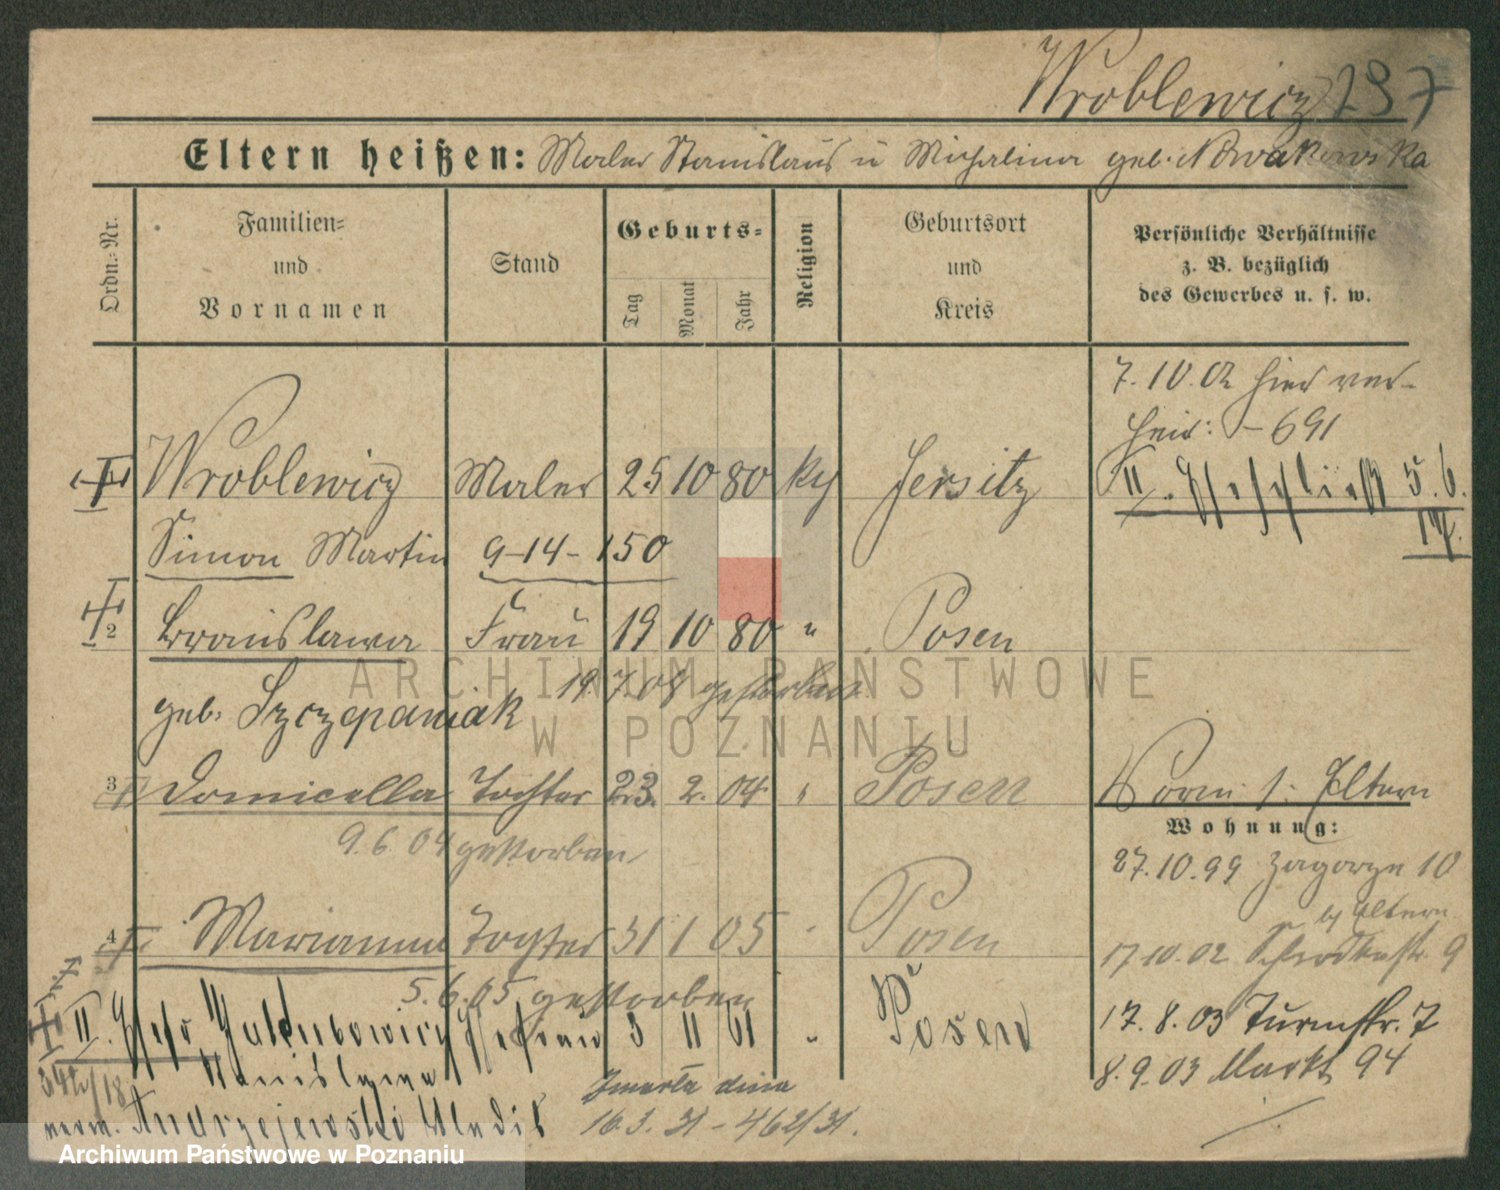 Wroblewicz 237
Eltern heißen: Maler Stanislaus u Michalina geb. Nowakowska
Ordn.-Nr.
Familien- und Vornamen
Stand
Geburts-
Tag
Monat
Jahr
Religion
Geburtsort und Kreis
Persönliche Verhältnisse z. B. bezüglich des Gewerbes u. s. w.
7.10.02 hier ver-
heir: - 691
Wroblewicz Maler 25 10 80 kg Jersitz
II. 5.6.
17.
Simon Martin 9-14-150
2 Bronislawa Frau 19 10 80 " Posen
geb. Szczepaniak 19.7.08 gestorben
3 Domicella Tochter 23. 2. 04 " Posen
Vorm. s. Eltern
9.6.04 gestorben
Wohnung:
27.10.99 Zagorze 10
b/ Eltern
4 Marianna Tochter 31 1 05 " Posen
17.10.02 9
5.6.05 gestorben
II. Jakubowicz Ehefrau 3 11 61 " Posen
17.8.03 Turmstr. 7
Stanislawa
8.9.03 Markt 94
Zmarła dnia
verw. Andrzejewski Wladis 16.3.31 - 462/31.
ARCHIWUM PAŃSTWOWE
W POZNANIU
Archiwum Państwowe w Poznaniu